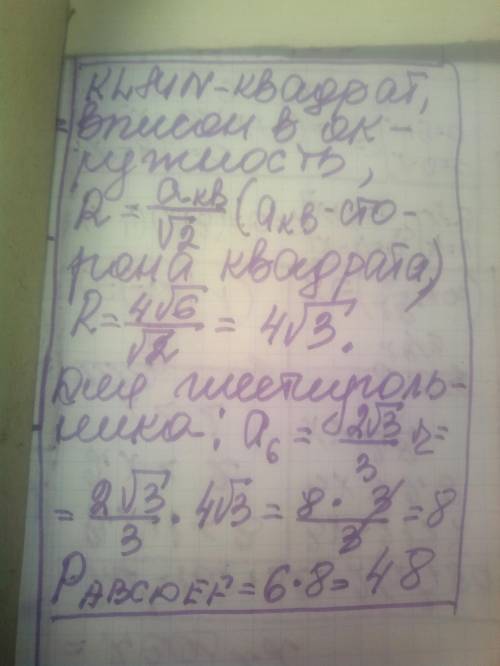 KLMN-квадрат,
вписан в ок-
ружность,
R = aкв/√2 (aкв-сто-
рона квадрата)
R = 4√6/√2 = 4√3.
Для шестиуголь-
ника: a₆ = 2√3/3 r =
= 2√3/3 · 4√3 = 8·3/3 = 8
P ABCDEF = 6·8 = 48